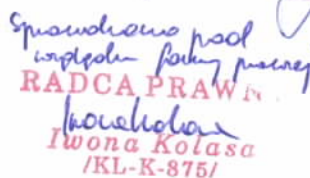 Sprawdzono pod
względem formy prawnej
RADCA PRAWN
Iwona Kolasa
/KL-K-875/